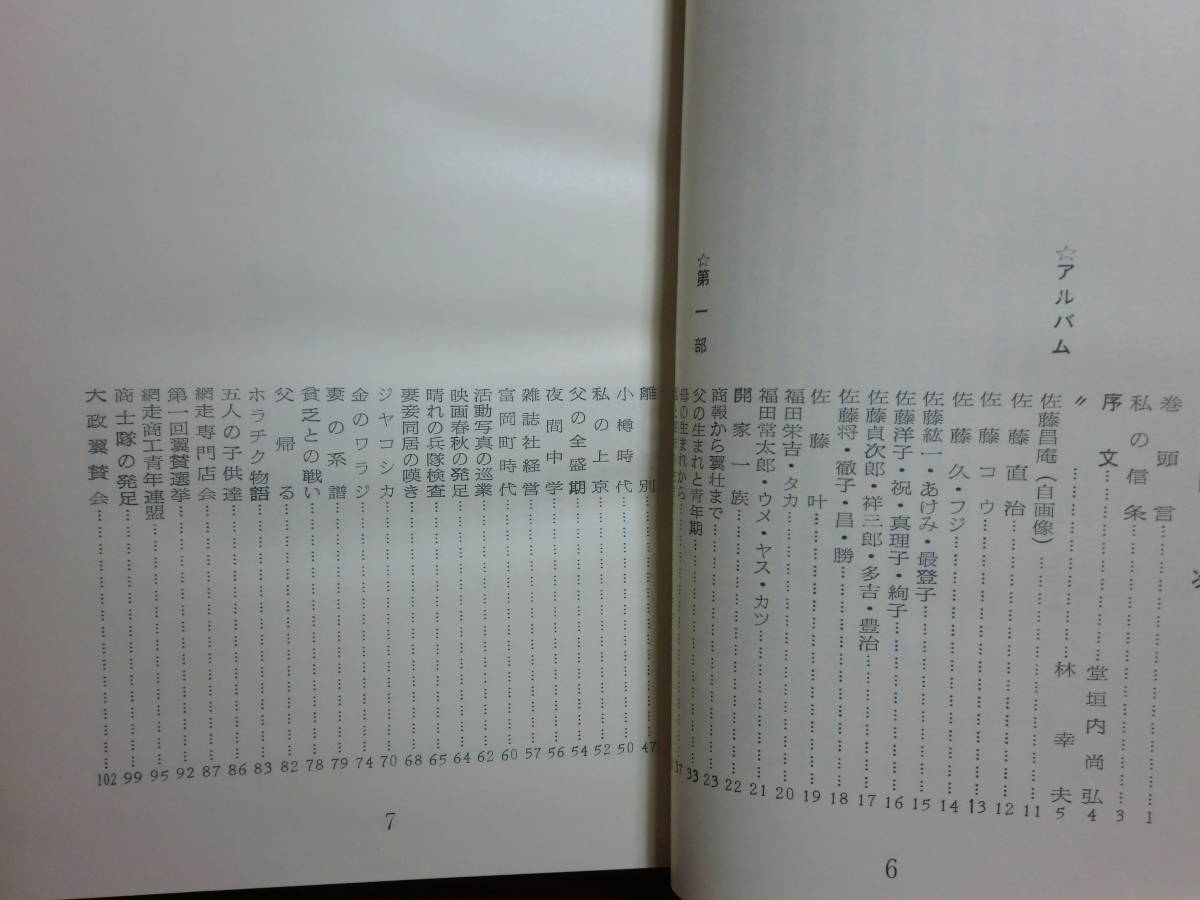 次
巻頭言……1
私の信条……3
序文……堂垣内尚弘 4
〃……林幸夫 5
☆アルバム
佐藤昌庵(自画像)……11
佐藤直治……12
佐藤コウ……13
佐藤久・フジ……14
佐藤紘一・あけみ・最登子……15
佐藤洋子・祝・真理子・絢子……16
佐藤貞次郎・祥三郎・多吉・豊治……17
佐藤将・徹子・昌・勝……18
佐藤叶……19
福田栄吉・タカ……20
福田常太郎・ウメ・ヤス・カツ……21
開家一族……22
☆第一部
商報から翼壮まで……23
父の生まれと青年期……33
母の生まれから……37
離別……47
小樽時代……50
私の上京……52
父の全盛期……54
夜間中学……56
雑誌社経営……57
富岡町時代……60
活動写真の巡業……62
映画春秋の発足……64
晴れの兵隊検査……65
妻妾同居の嘆き……68
ジヤコシカ……70
金のワラジ……74
妻の系譜……79
貧乏との戦い……78
父帰る……82
ホラチク物語……83
五人の子供達……86
網走専門店会……87
第一回翼賛選挙……92
網走商工青年連盟……95
商士隊の発足……99
大政翼賛会……102
6
7